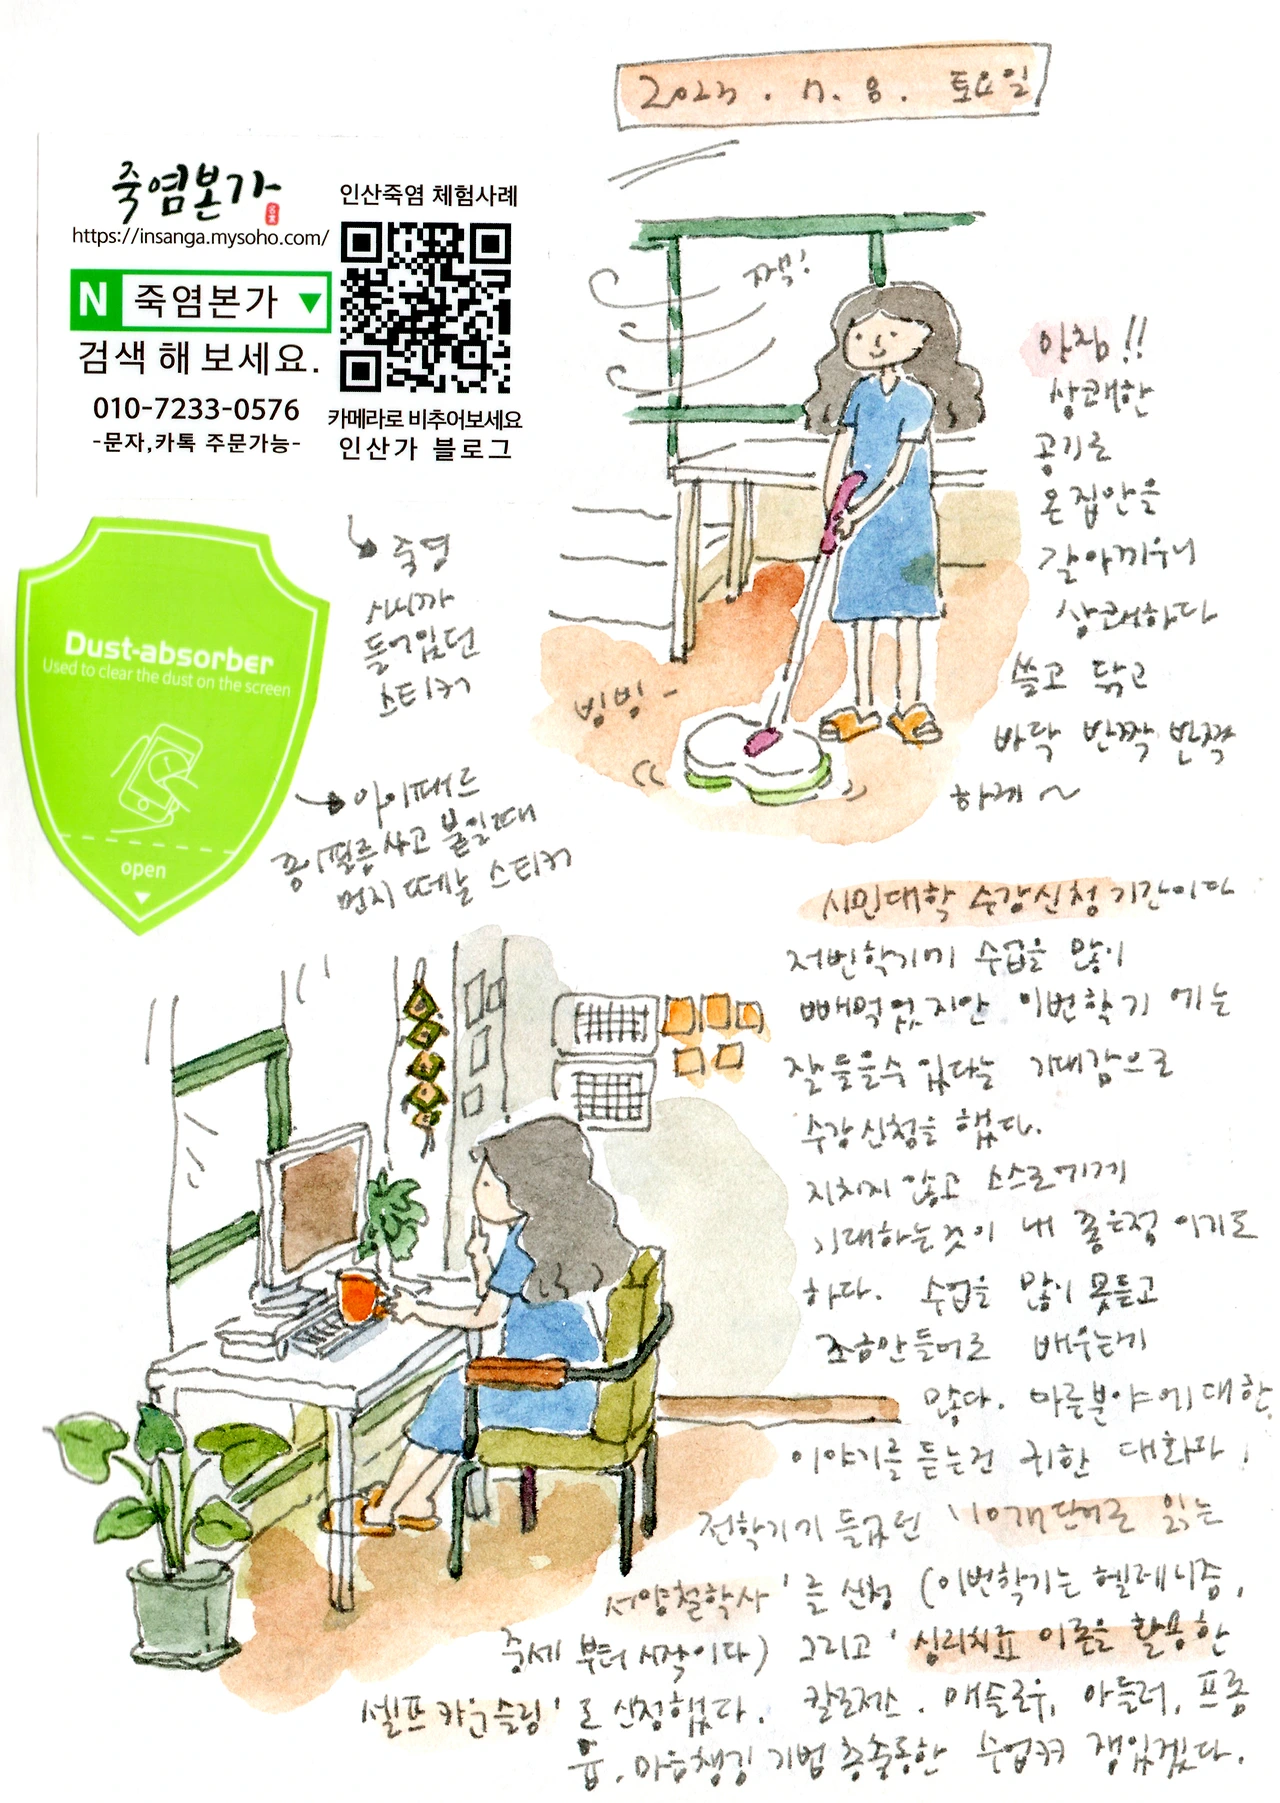 2023. 7. 8. 토요일
죽염본가
https://insanga.mysoho.com/
N 죽염본가 ▼
검색 해 보세요.
010-7233-0576
-문자,카톡 주문가능-
인산죽염 체험사례
카메라로 비추어보세요
인산가 블로그
죽염
사니까
들어있던
스티커
Dust-absorber
Used to clear the dust on the screen
open
아이패드
종이필름 사고 붙일때
먼지 떼낼 스티커
아침!!
상쾌한
공기로
온 집안을
갈아끼우니
상쾌하다
쓸고 닦고
바닥 반짝 반짝
하게~
빙빙-
시민대학 수강신청 기간이다
저번학기에 수업을 많이
빼먹었지만 이번학기에는
잘 들을수 있다는 기대감으로
수강신청을 했다.
지치지 않고 스스로에게
기대하는것이 내 좋은점 이기도
하다. 수업을 많이 못듣고
조금만 들어도 배우는게
많다. 다른분야에 대한
이야기를 듣는건 귀한 대화다.
전학기가 들었던 '10개 단어로 읽는
서양철학사'를 신청 (이번학기는 헬레니즘,
중세 부터 시작이다) 그리고 '심리치료 이론을 활용한
셀프 카운슬링'로 신청했다. 칼로저스. 매슬로우, 아들러, 프롬
융. 마음챙김 기법 총출동한 수업 재밌겠다.